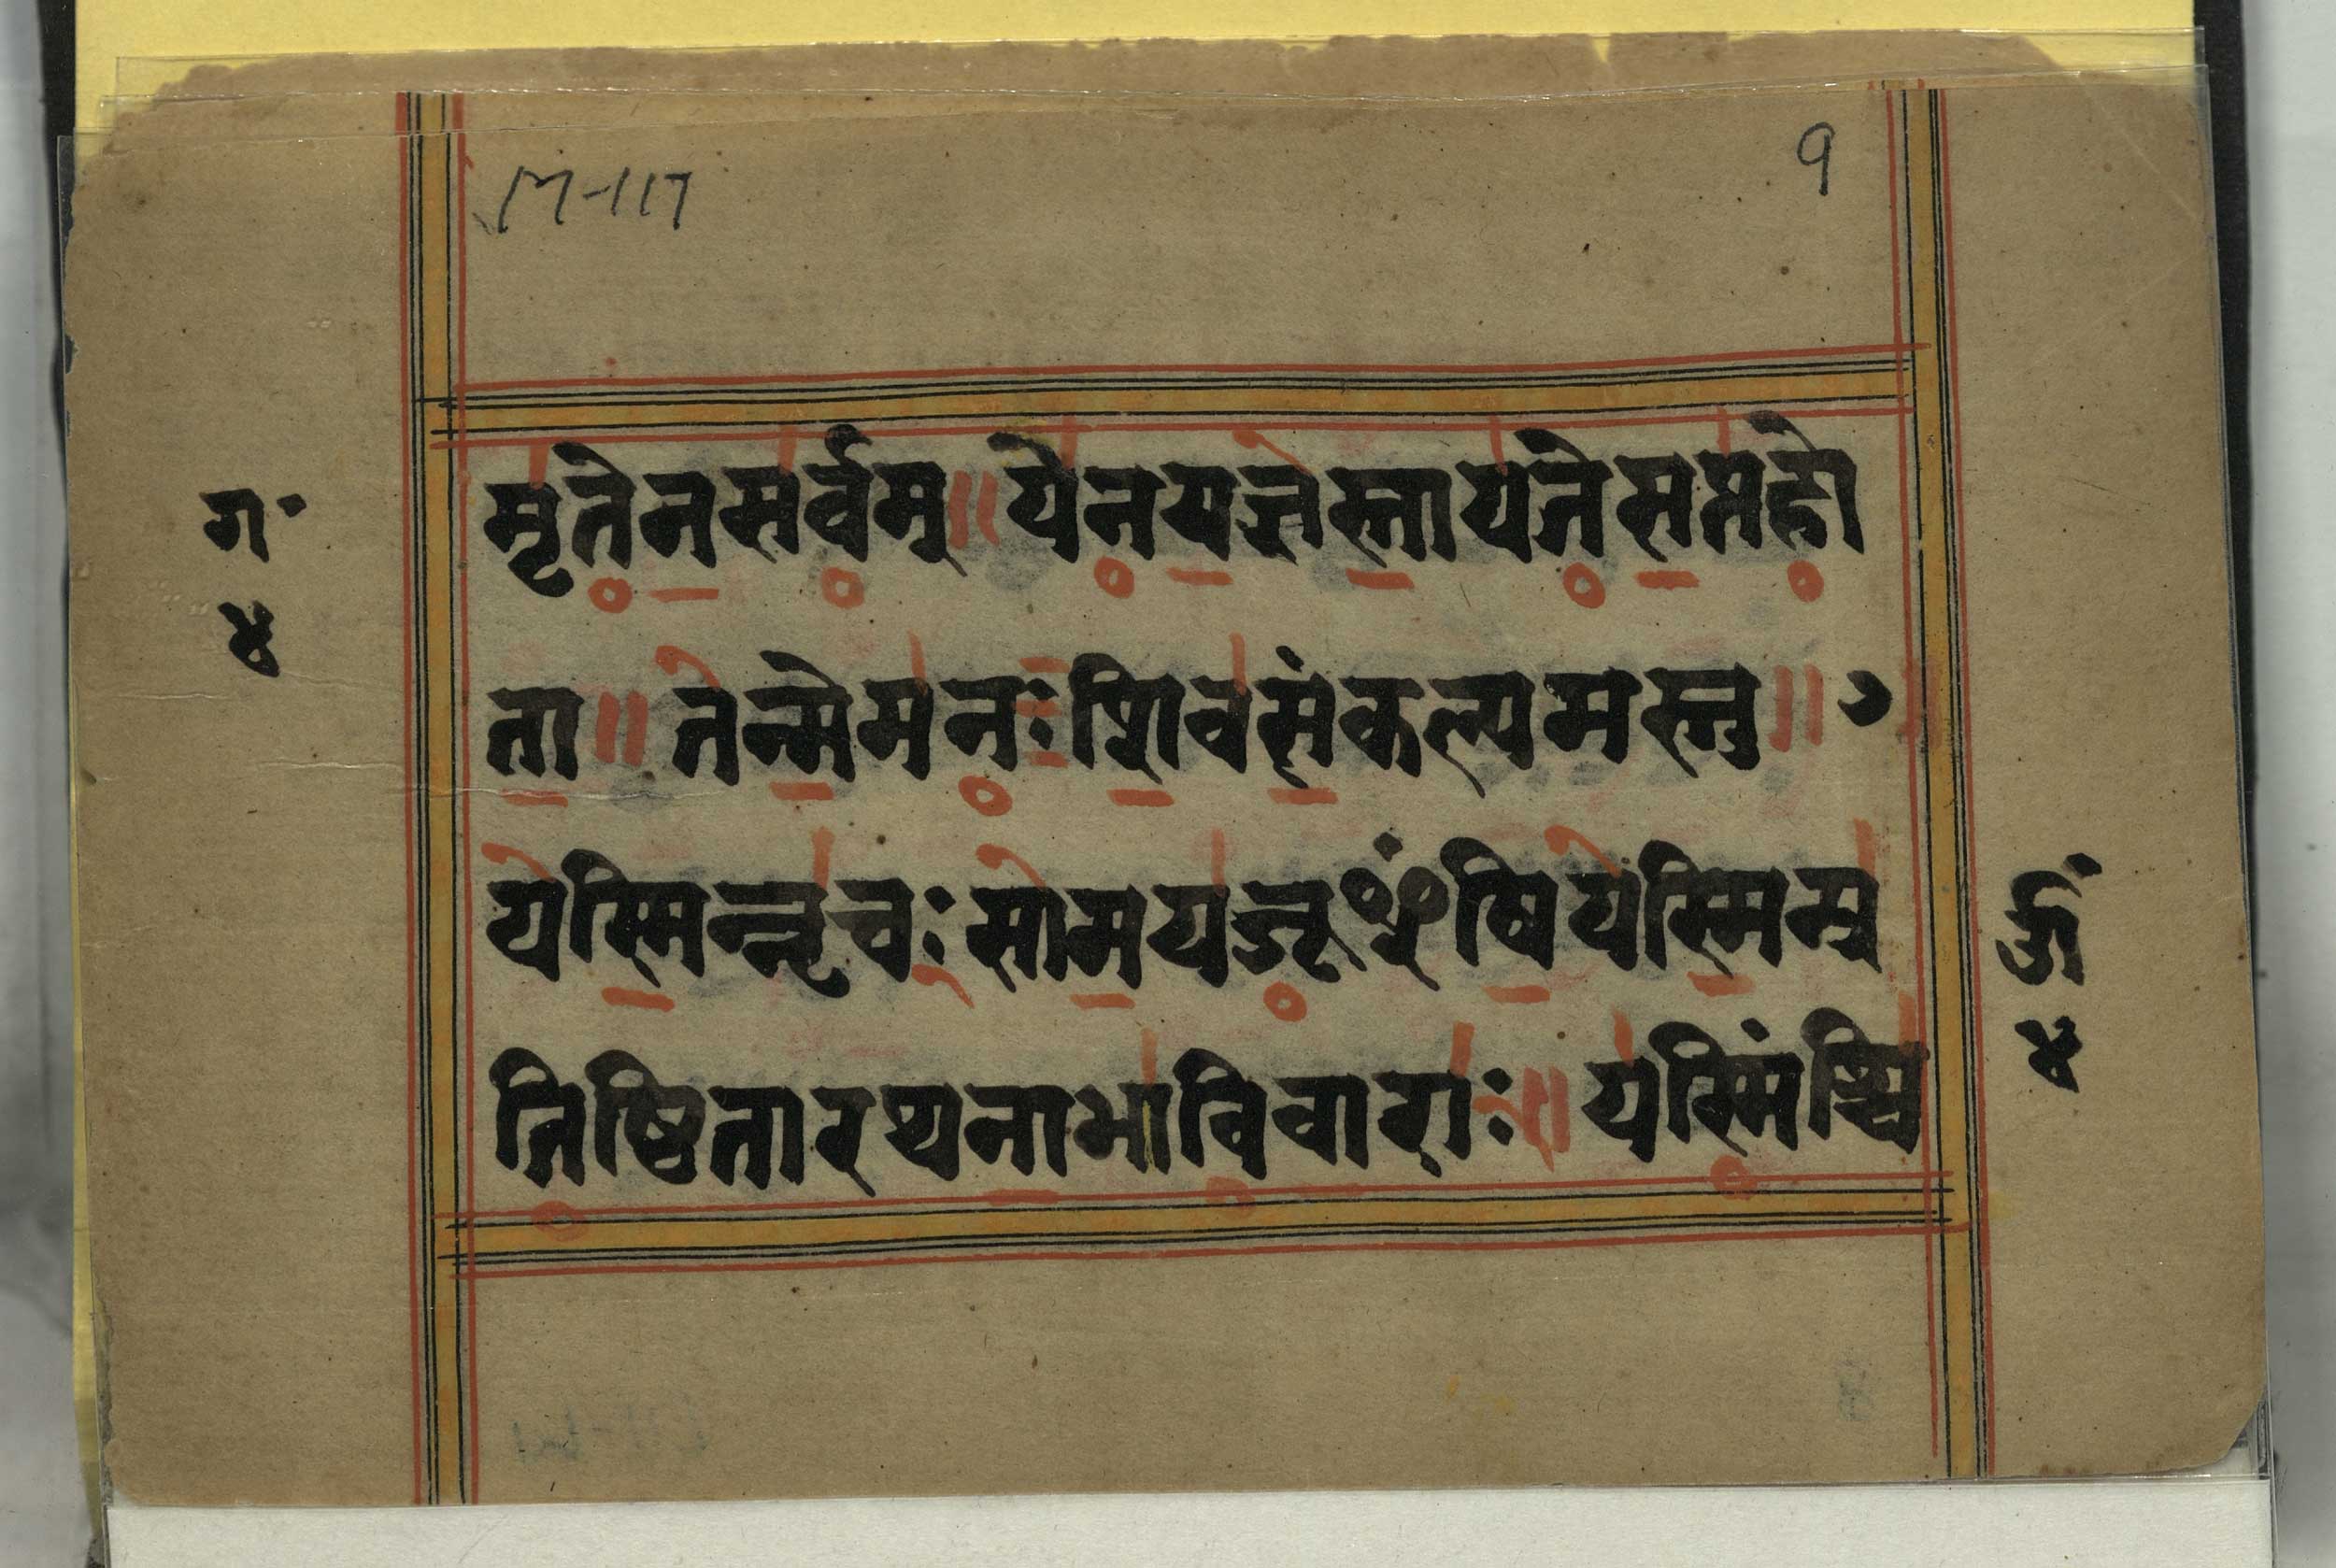 M-117
9
मृतेनसर्वम्॥येनयज्ञस्तायतेसप्तहो
ता॥तन्मेमनःशिवसंकल्पमस्तु॥
यस्मिन्नृचःसामयजूᳬषियस्मिन्प्र
तिष्ठितारथनाभाविवाराः॥यस्मिंश्चि
ग॰
४
४